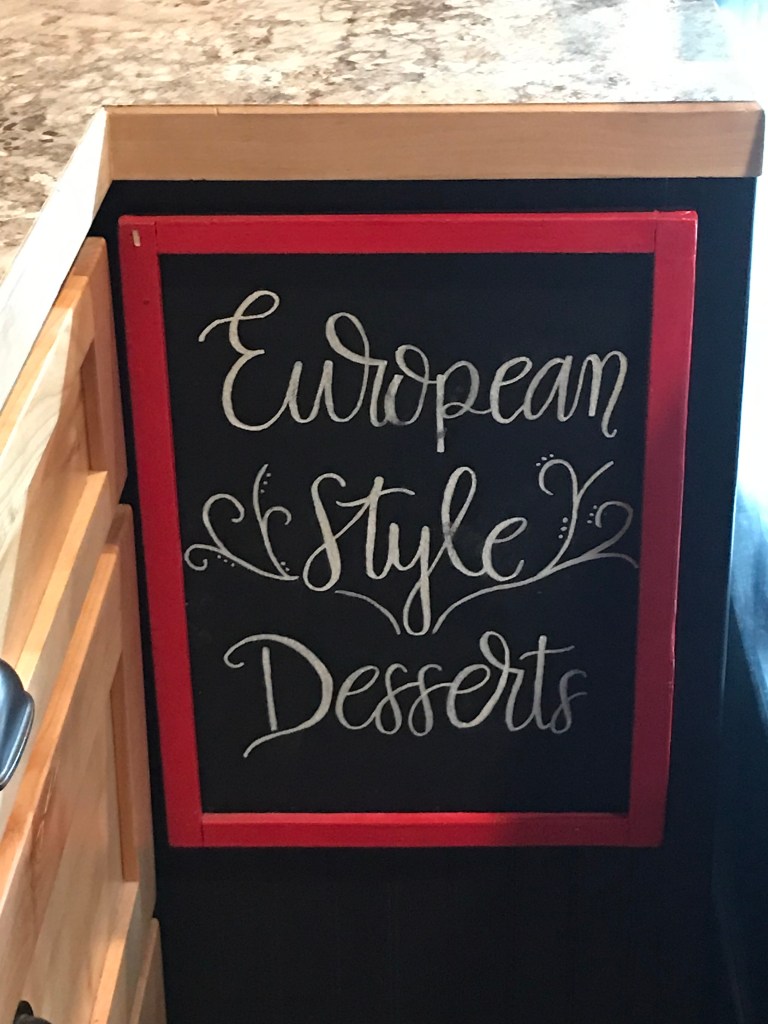 European
Style
Desserts